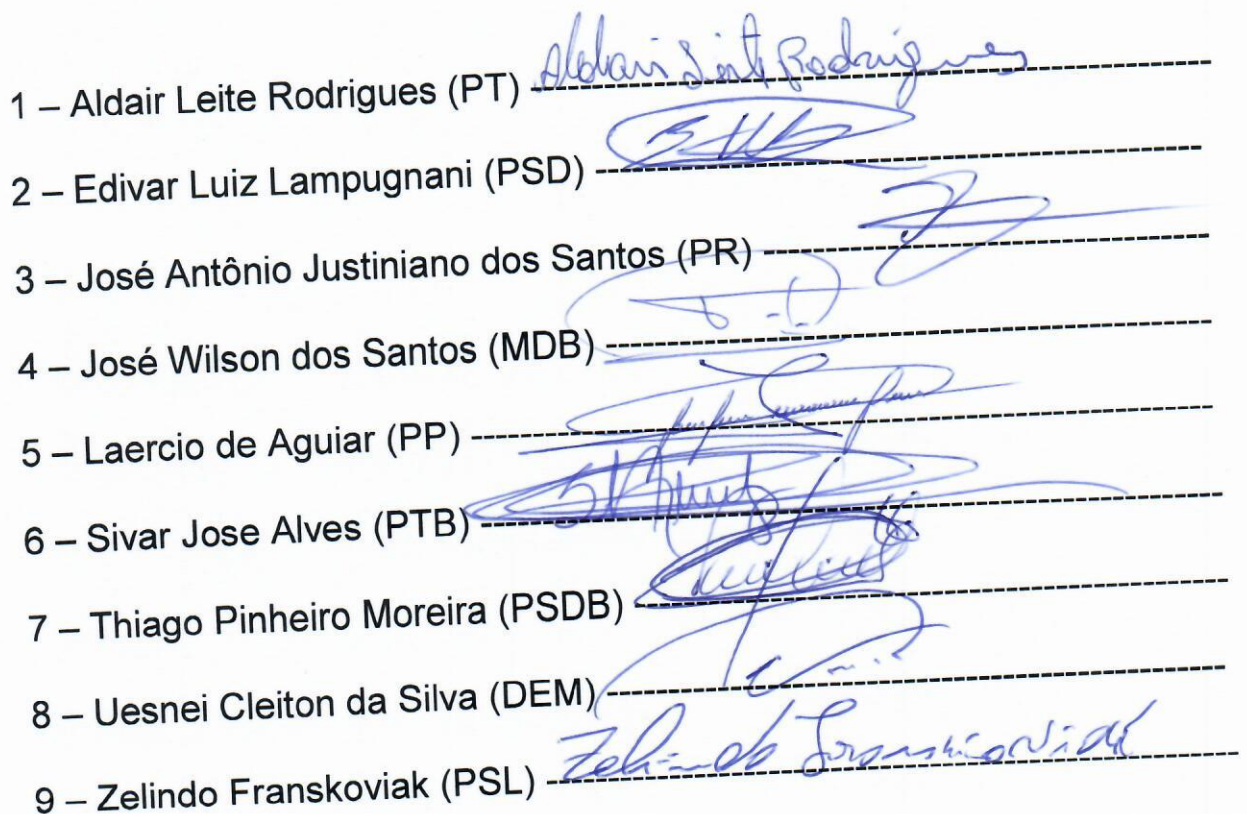 1 – Aldair Leite Rodrigues (PT) Aldair Leite Rodrigues
2 – Edivar Luiz Lampugnani (PSD)
3 – José Antônio Justiniano dos Santos (PR)
4 – José Wilson dos Santos (MDB)
5 – Laercio de Aguiar (PP)
6 – Sivar Jose Alves (PTB)
7 – Thiago Pinheiro Moreira (PSDB)
8 – Uesnei Cleiton da Silva (DEM)
9 – Zelindo Franskoviak (PSL) Zelindo Franskoviak